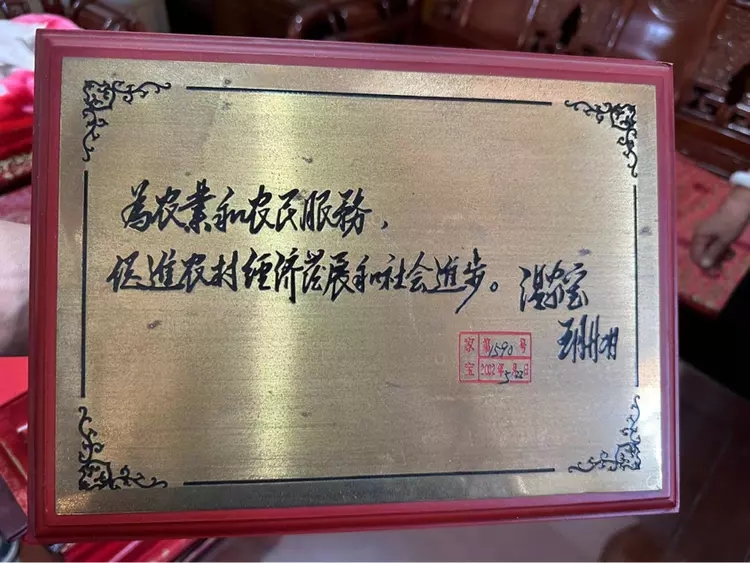 為农業和农民服務，
促進农村經济发展和社会進步。温家宝
家 第1590号
宝 2022年5月22日